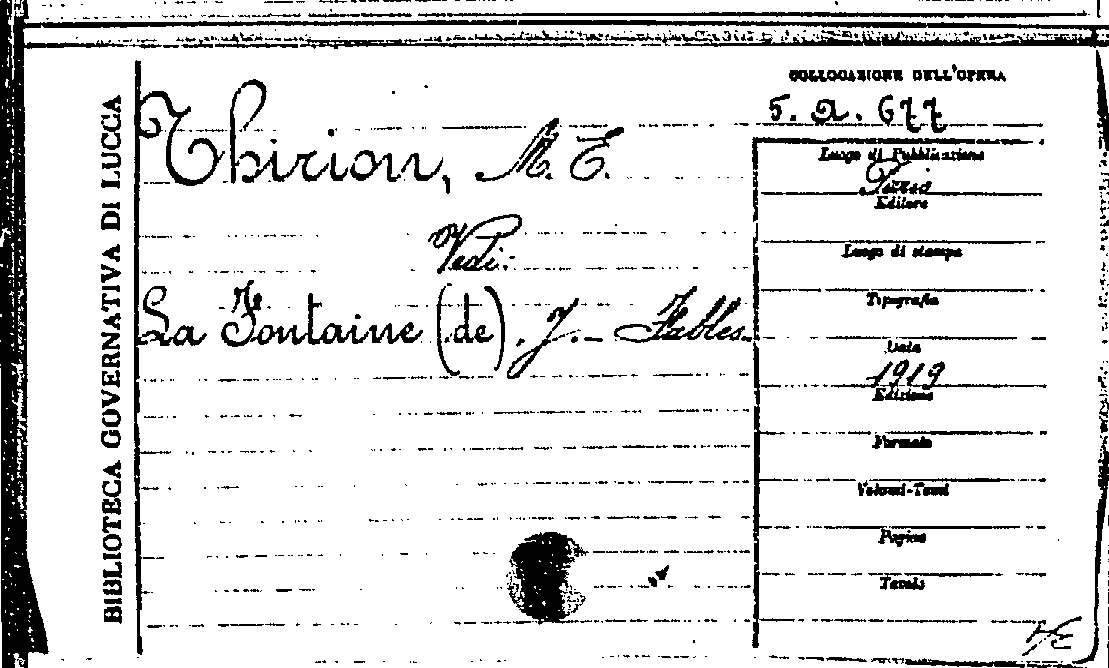 BIBLIOTECA GOVERNATIVA DI LUCCA
Thirion, M. E.
Vedi:
La Fontaine (de), J. – Fables.
COLLOCAZIONE DELL'OPERA
5. a. 677
Luogo di Pubblicazione
Editore
Luogo di stampa
Tipografia
Data
1919
Edizione
Formato
Volumi-Tomi
Pagine
Tavole